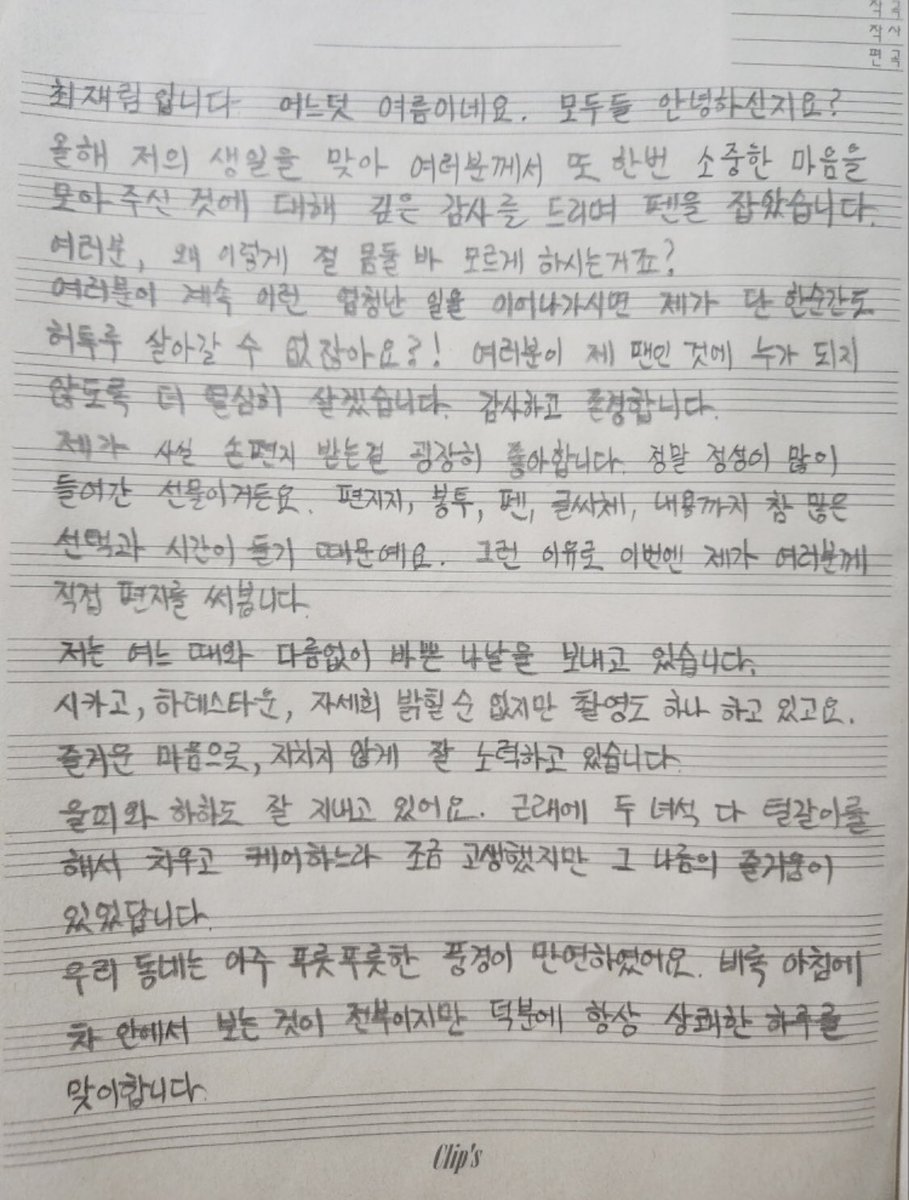 작곡
작사
편곡
최재림입니다. 어느덧 여름이네요. 모두들 안녕하신지요?
올해 저의 생일을 맞아 여러분께서 또 한번 소중한 마음을
모아주신 것에 대해 깊은 감사를 드리며 펜을 잡았습니다.
여러분, 왜 이렇게 절 몸둘 바 모르게 하시는거죠?
여러분이 계속 이런 엄청난 일을 이어나가시면 제가 단 한순간도
허투루 살아갈 수 없잖아요?! 여러분이 제 팬인 것에 누가 되지
않도록 더 열심히 살겠습니다. 감사하고 존경합니다.
제가 사실 손편지 받는걸 굉장히 좋아합니다. 정말 정성이 많이
들어간 선물이거든요. 편지지, 봉투, 펜, 글씨체, 내용까지 참 많은
선택과 시간이 들기 때문예요. 그런 이유로 이번엔 제가 여러분께
직접 편지를 써봅니다.
저는 여느 때와 다름없이 바쁜 나날을 보내고 있습니다.
시카고, 하데스타운, 자세히 밝힐 순 없지만 촬영도 하나 하고 있고요.
즐거운 마음으로, 지치지 않게 잘 노력하고 있습니다.
올피와 하하도 잘 지내고 있어요. 근래에 두 녀석 다 털갈이를
해서 치우고 케어하느라 조금 고생했지만 그 나름의 즐거움이
있었답니다.
우리 동네는 아주 푸릇푸릇한 풍경이 만연하였어요. 비록 아침에
차 안에서 보는 것이 전부이지만 덕분에 항상 상쾌한 하루를
맞이합니다.
Clip's